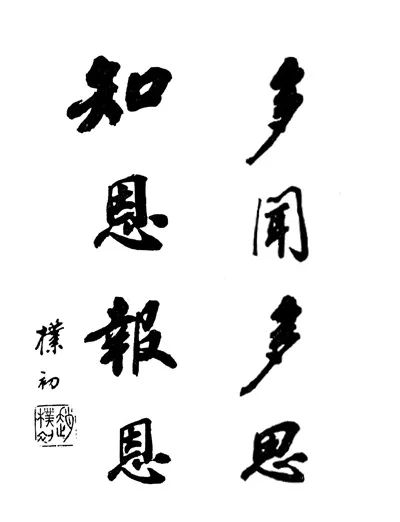 多聞多思
知恩報恩
樸初
趙樸初